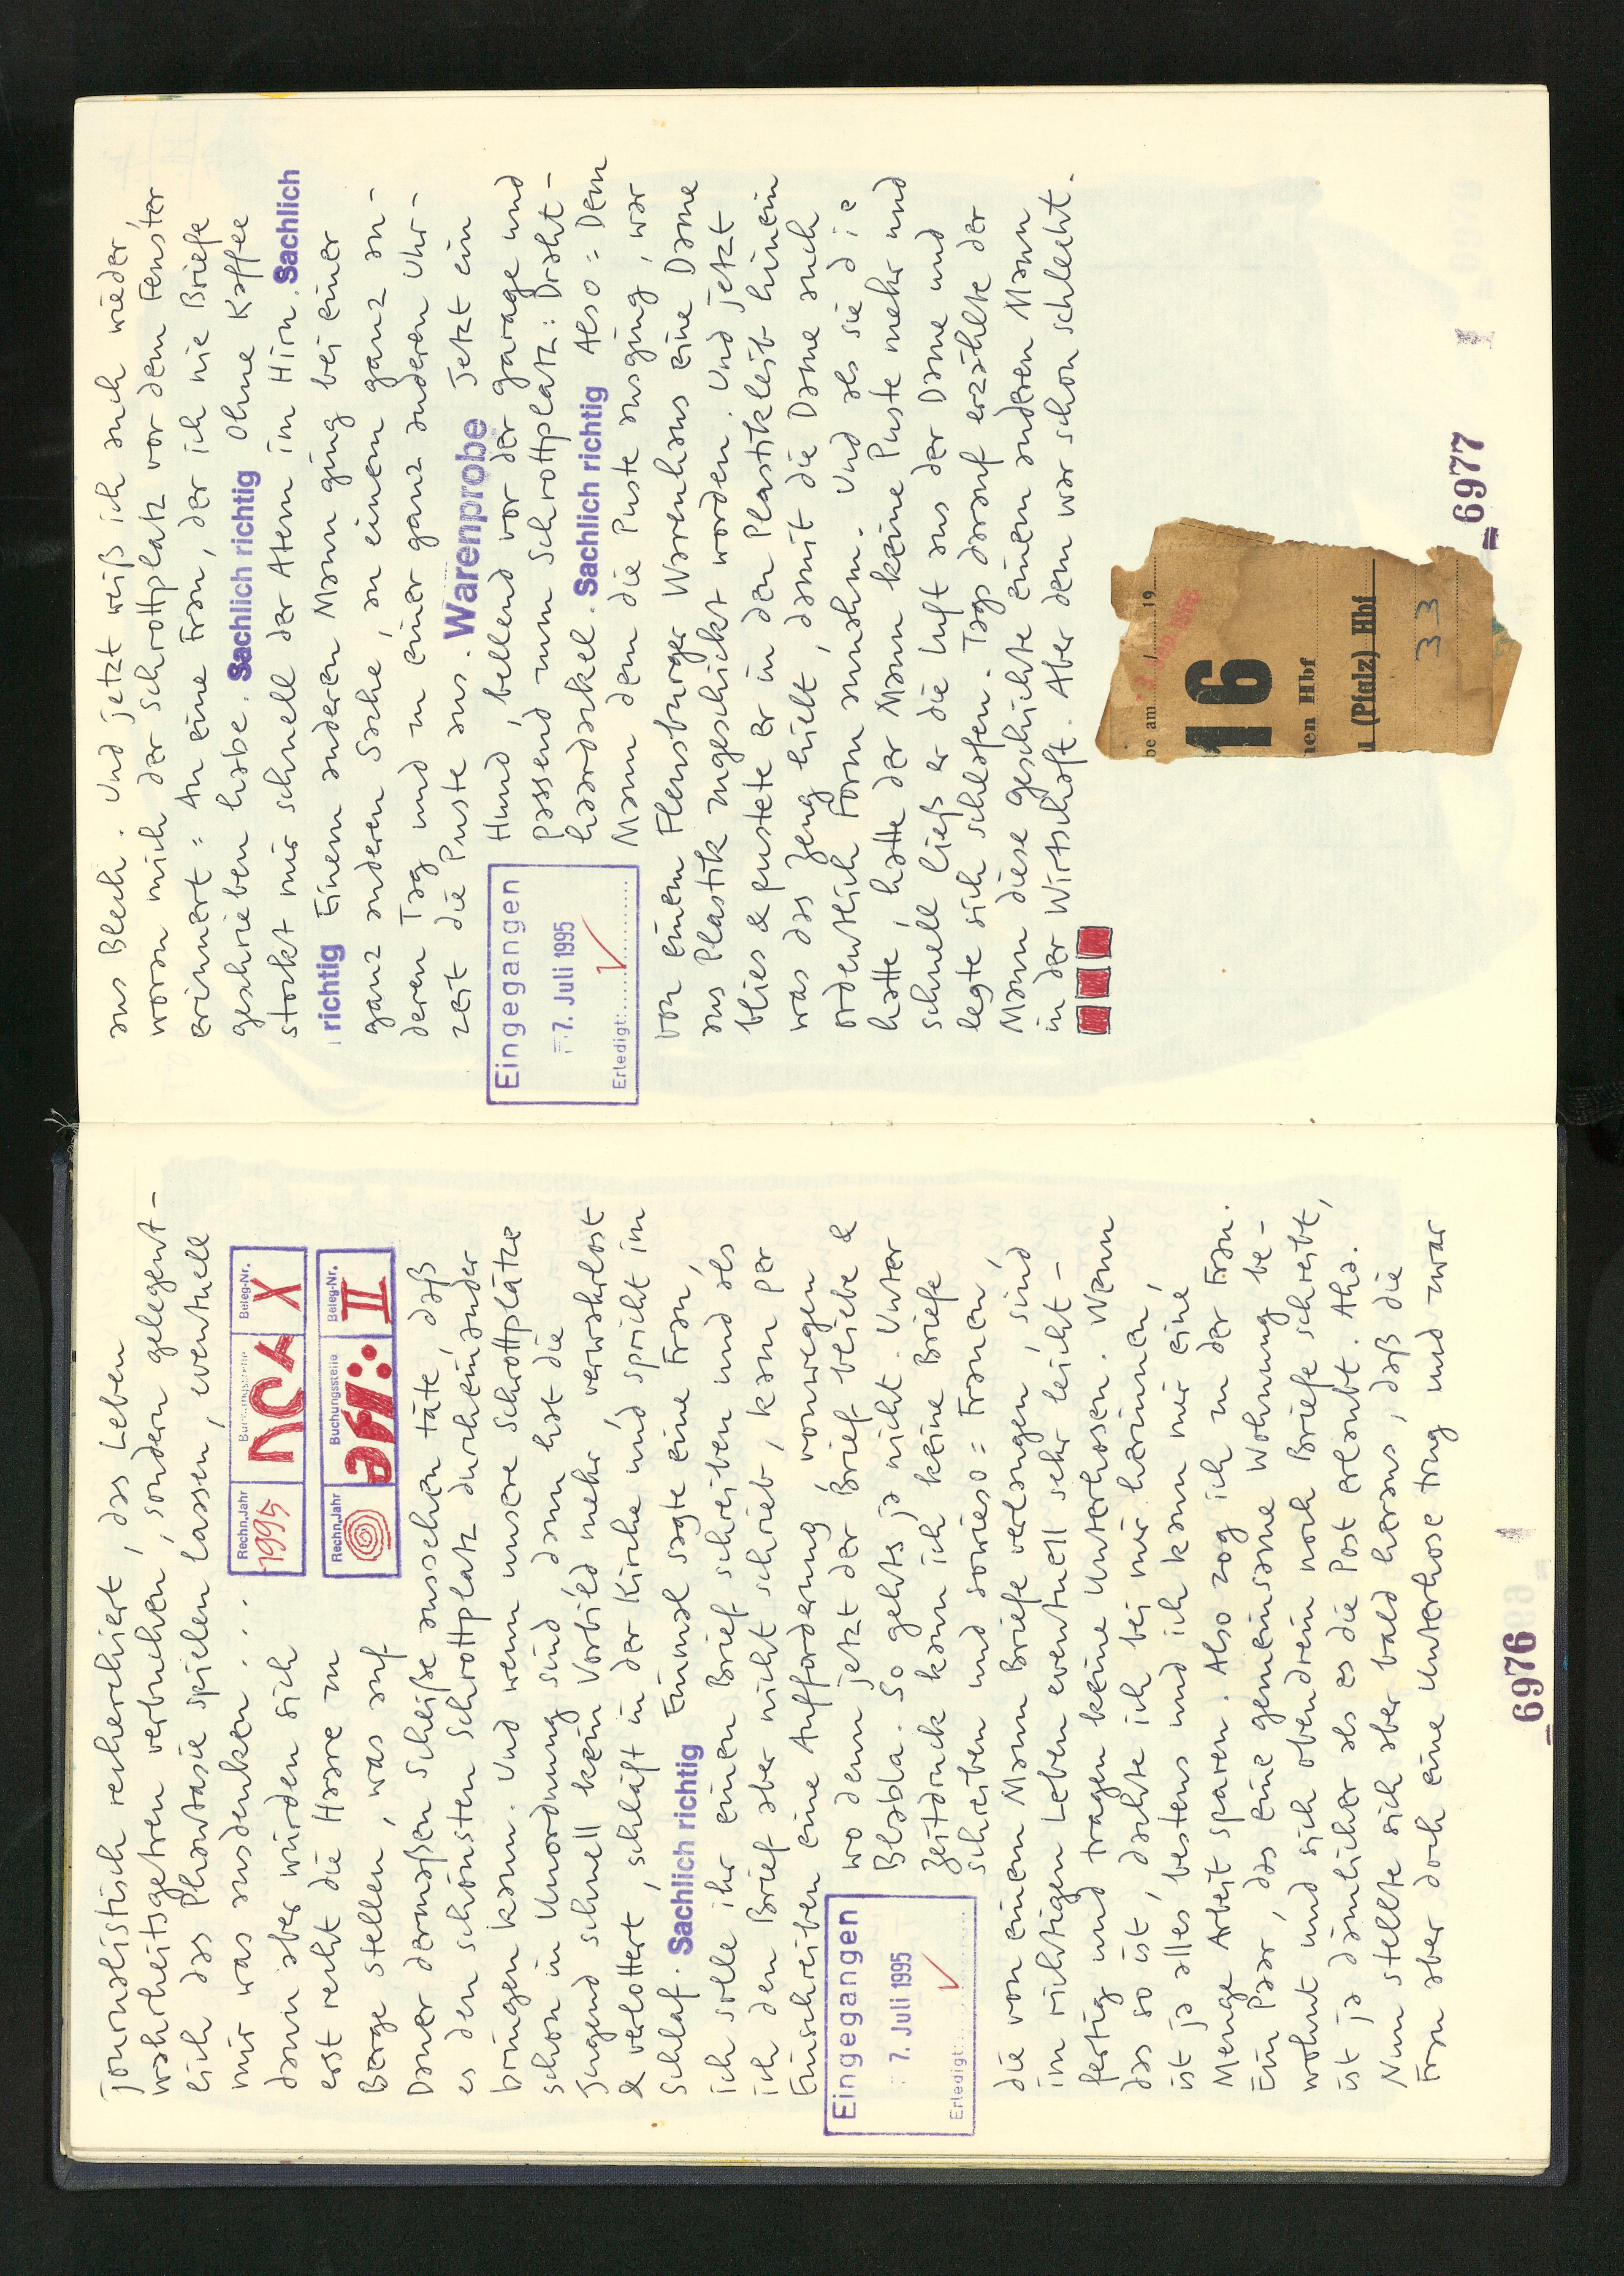 journalistisch recherchiert, das Leben
wahrheitsgetreu verbuchen, sondern gelegent-
lich das Phantasie spielen lassen, eventuell
mir was ausdenken . . .
dann aber würden sich
erst recht die Haare zu
Berge stellen, was auf
Rechn.Jahr Buchungsstelle Beleg-Nr.
1995 X
Rechn.Jahr Buchungsstelle Beleg-Nr.
II
Dauer dermaßen Scheiße aussehen täte, daß
es den schönsten Schrottplatz durcheinander
bringen kann. Und wenn unsere Schrottplätze
schon in Unordnung sind dann hat die
Jugend schnell kein Vorbild mehr verwahrlost
& verlottert, schläft in der Kirche und spricht im
Schlaf. Sachlich richtig Einmal sagte eine Frau,
ich solle ihr einen Brief schreiben und als
ich den Brief aber nicht schrieb, kam per
Einschreiben eine Aufforderung, vonwegen
wo denn jetzt der Brief bliebe &
Blabla. So gehts ja nicht. Unter
Zeitdruck kann ich keine Briefe
schreiben und sowieso = Frauen,
Eingegangen
7. Juli 1995
Erledigt:
die von einem Mann Briefe verlangen, sind
im richtigen Leben eventuell sehr leicht-
fertig und tragen keine Unterhosen. Wenn
das so ist, dachte ich bei mir herinnen,
ist ja alles bestens und ich kann mir eine
Menge Arbeit sparen. Also zog ich zu der Frau.
Ein Paar, das eine gemeinsame Wohnung be-
wohnt und sich obendrein noch Briefe schreibt,
ist ja dämlicher als es die Post erlaubt. Aha.
Nun stellte sich aber bald heraus, daß die
Frau aber doch eine Unterhose trug und zwar
6976
aus Blech. Und jetzt weiß ich auch wieder
woran mich der Schrottplatz vor dem Fenster
erinnert = An eine Frau, der ich nie Briefe
geschrieben habe. Sachlich richtig Ohne Kaffee
stockt mir schnell der Atem im Hirn. Sachlich
richtig Einem anderen Mann ging bei einer
ganz anderen Sache, an einem ganz an-
deren Tag und zu einer ganz anderen Uhr-
zeit die Puste aus. Warenprobe Jetzt ein
Hund, bellend vor der Garage und
passend zum Schrottplatz: Draht-
haardackel. Sachlich richtig Also = Dem
Mann dem die Puste ausging, war
Eingegangen
7. Juli 1995
Erledigt:
von einem Flensburger Warenhaus eine Dame
aus Plastik zugeschickt worden. Und jetzt
blies & pustete er in den Plastikleib hinein
was das Zeug hielt, damit die Dame auch
ordentlich Form annahm. Und als sie die
hatte, hatte der Mann keine Puste mehr und
schnell ließ er die Luft aus der Dame und
legte sich schlafen. Tags darauf erzählte der
Mann diese Geschichte einem anderen Mann
in der Wirtschaft. Aber dem war schon schlecht.
be am 19
16
en Hbf
(Pfalz) Hbf
33
6977